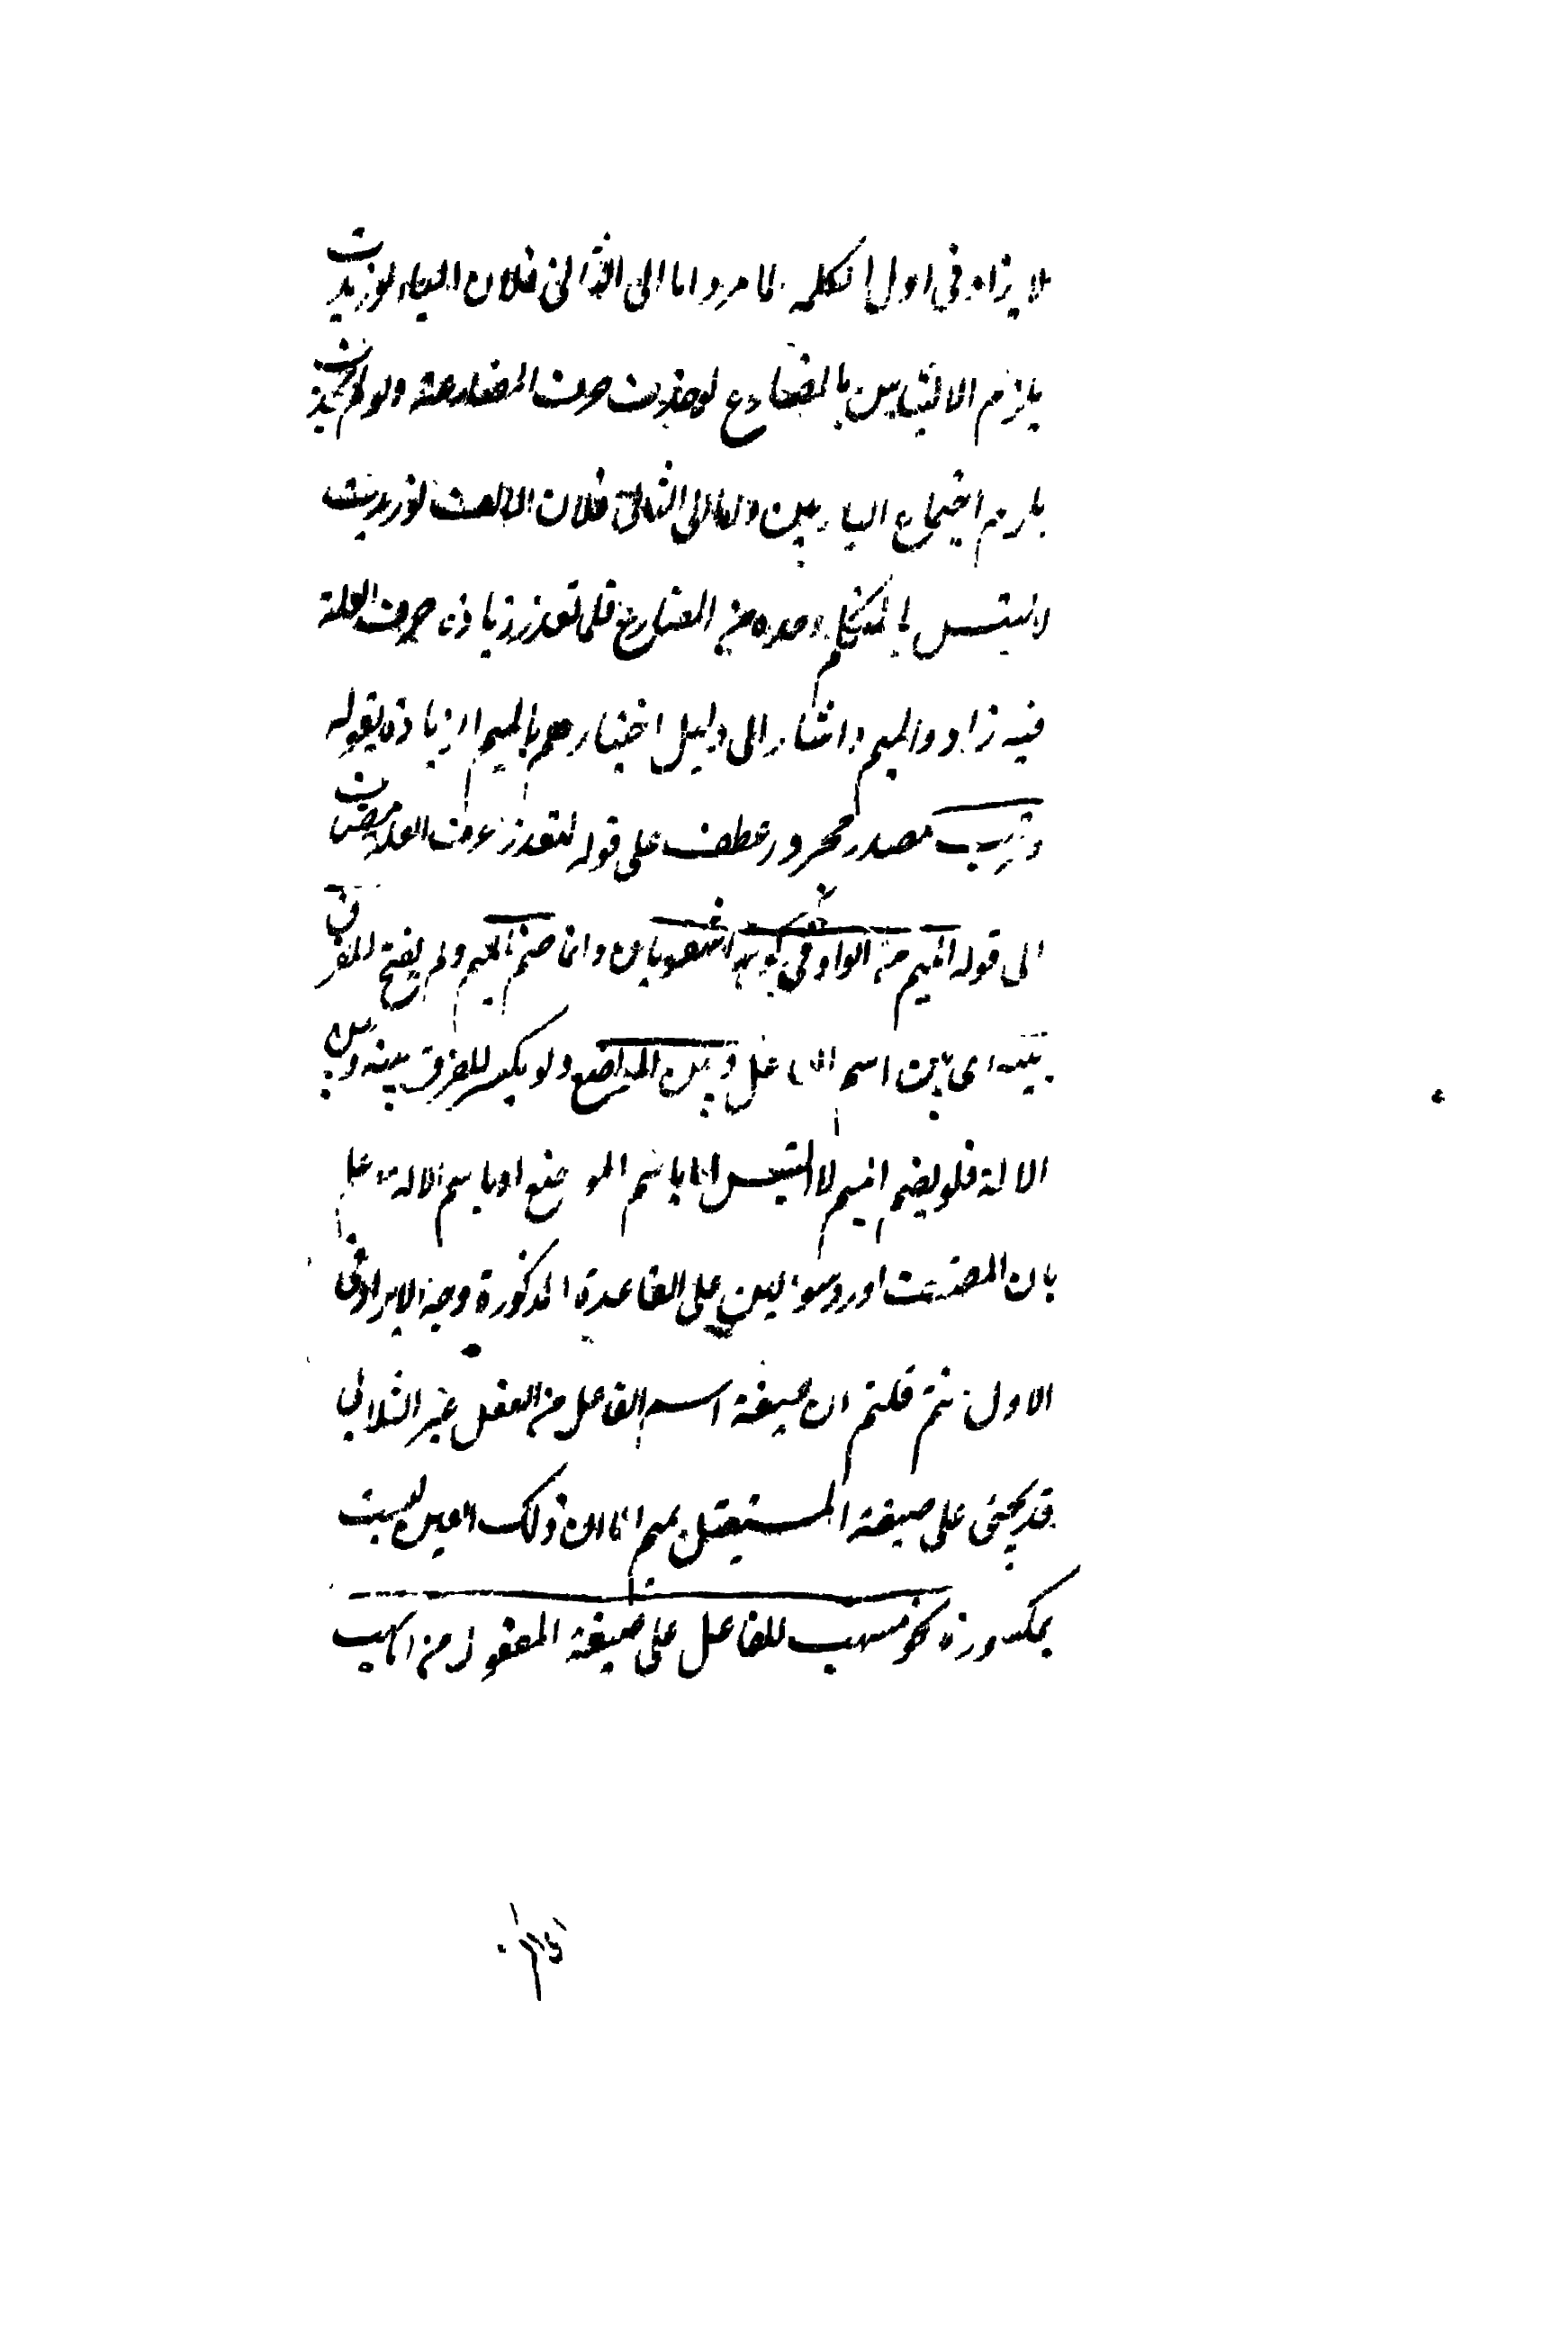 لا يزاد في اول الكلمة لما مر واما الى الثاني فلان الياء لو زيدت
يلزم الالتباس بالمضارع لو حذفت حرف المضارعة ولو لم يحذف
يلزم اجتماع اليائين واما الى الثالث فلان الالف لو زيدت
لالتبس بالمتكلم وحده من المضارع فلما تعذر زيادة حرف العلة
فيه زادوا الميم واشار الى دليل اختيارهم بالميم الزيادة بقوله
وقرب مصدر مجرور عطف على قوله لتعذر حرف العلة مضاف
الى قوله الميم من الواو في كونهما شفويا وانما ضم الميم ولم يفتح للفرق
بينه اى بين اسم الفاعل وبين الموضع ولم يكسر للفرق بينه وبين
الالة فلو لم يضم الميم لا التبس اما باسم الموضع او باسم الالة اعلم
بان المصنف اورد سوالين على القاعدة المذكورة وجه الايراد في
الاول انتم قلتم ان صيغة اسم الفاعل من الفعل غير الثلاثي
قد يجئ على صيغة المستقبل بميم اما ان ذلك العين ليست
بمكسورة نحو مسهب للفاعل على صيغة المفعول من اسهب